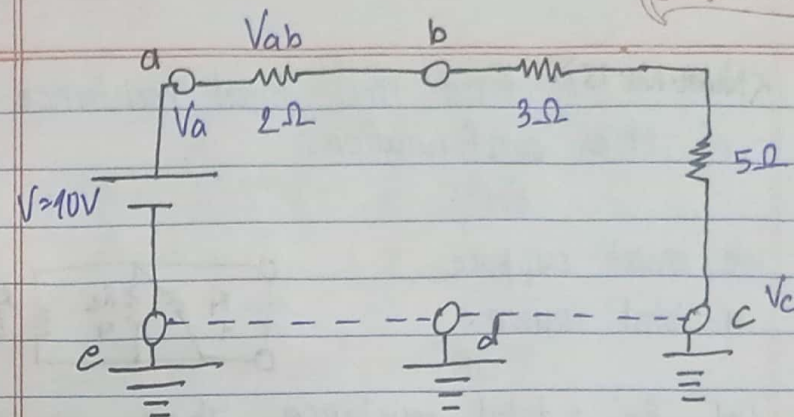 Vab
a
b
Va
2Ω
3Ω
5Ω
V=10V
e
d
c
Vc